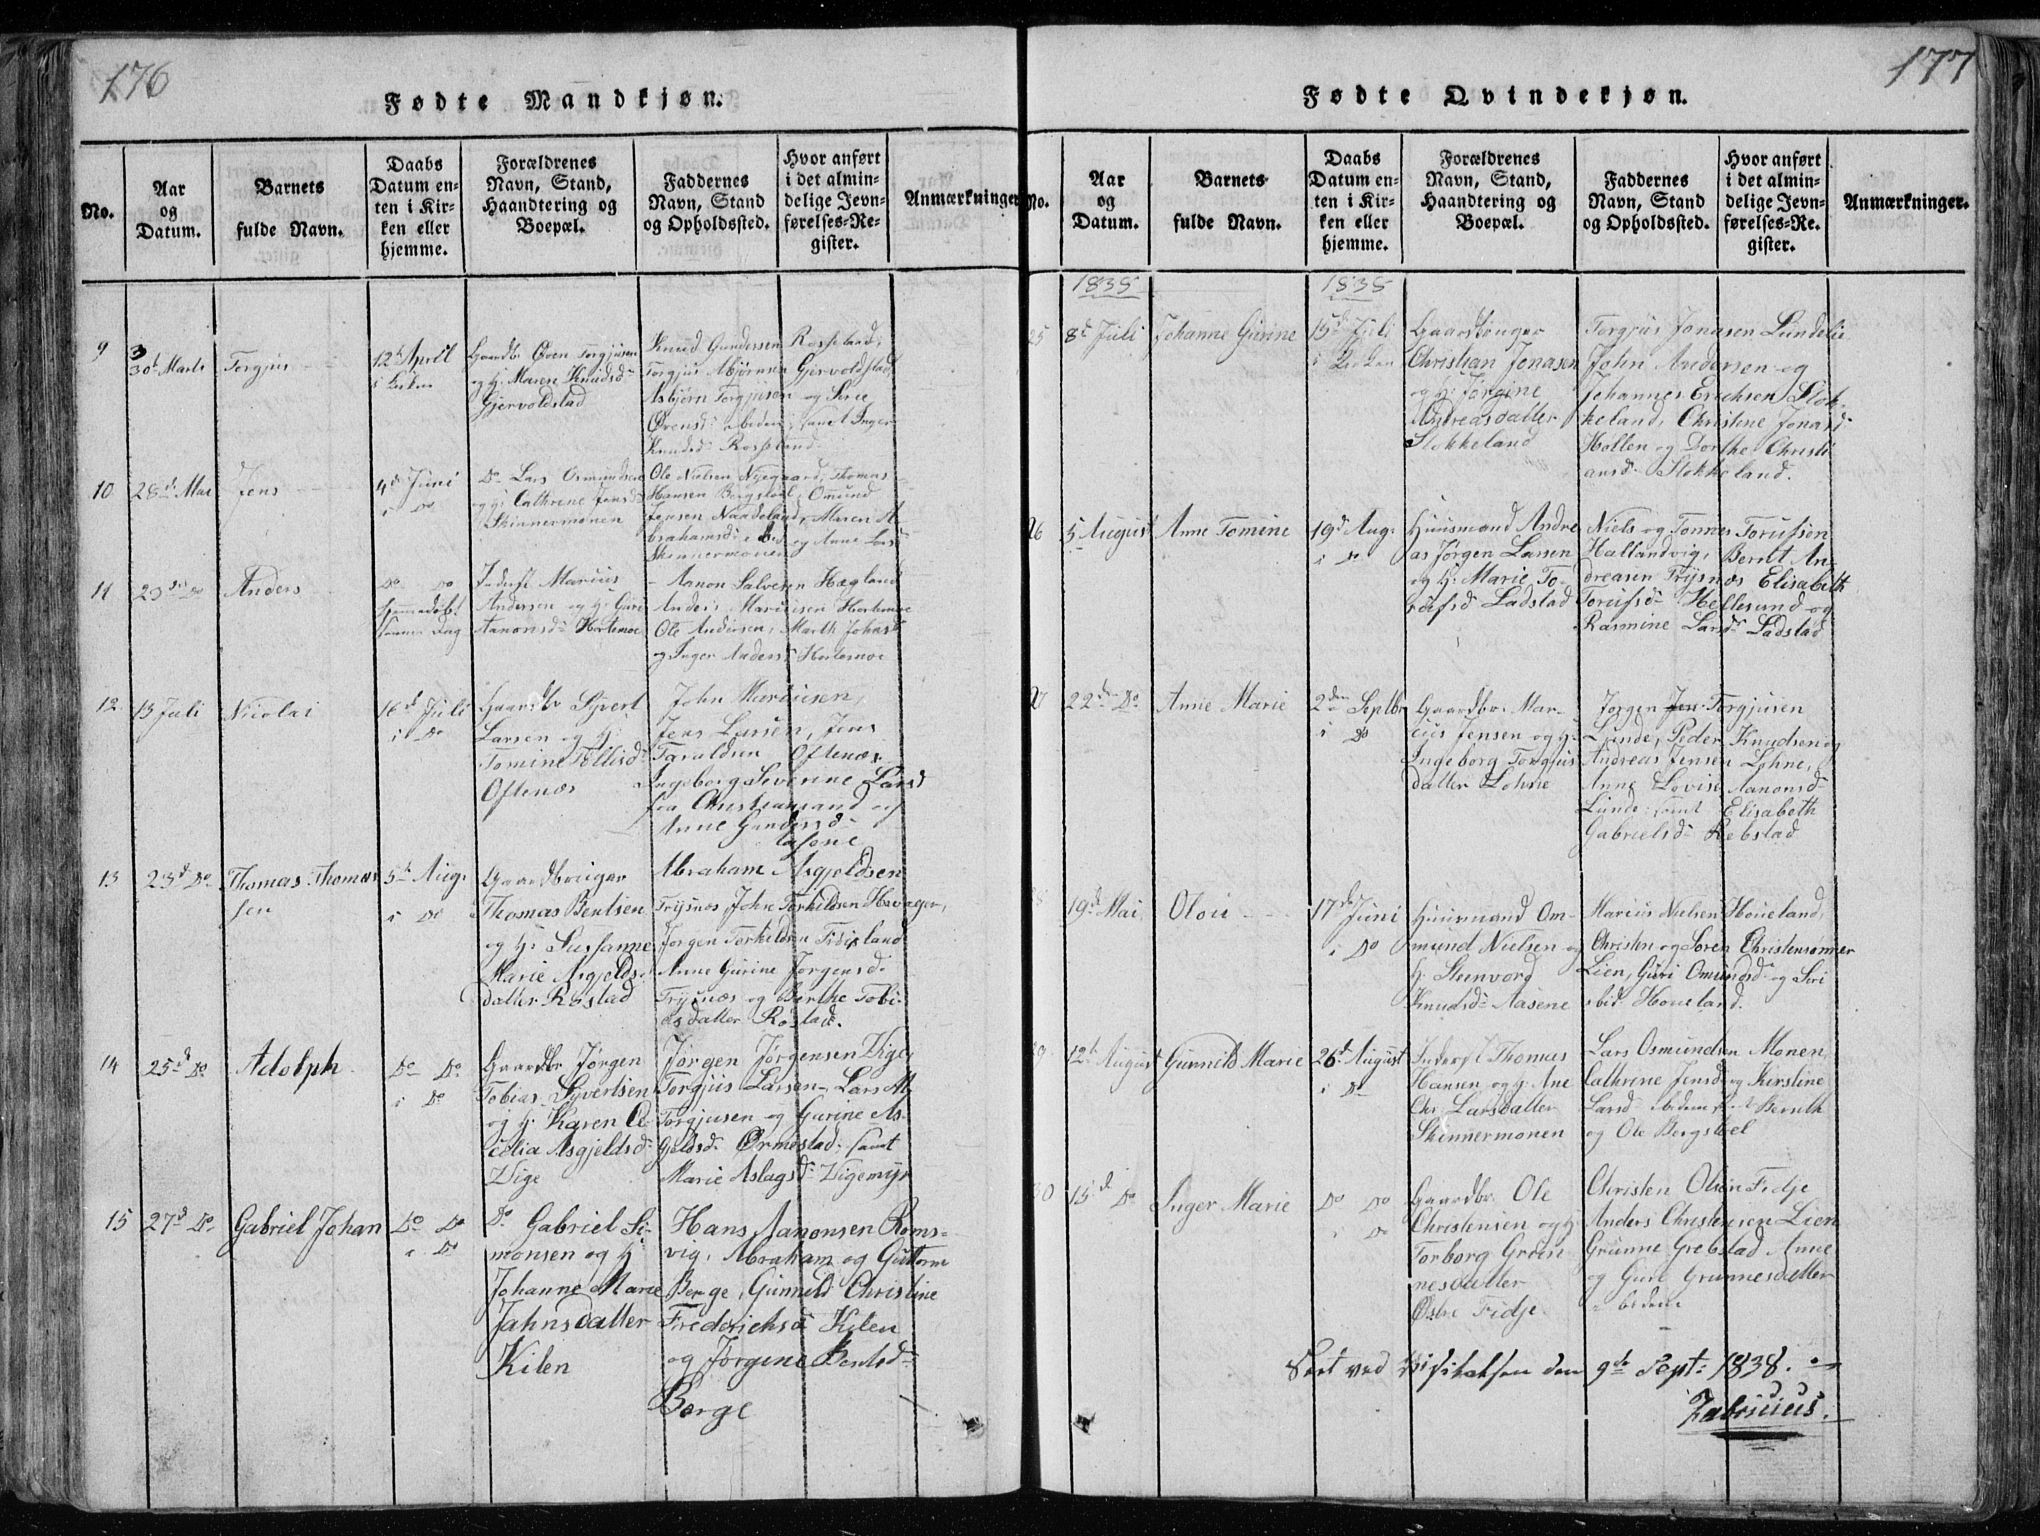 176
Fødte Mandkjøn.
No.
Aar
og
Datum.
Barnets
fulde Navn.
Daabs
Datum en-
ten i Kir-
ken eller
hjemme.
Forældrenes
Navn, Stand,
Haandtering og
Boepæl.
Faddernes
Navn, Stand
og Opholdssted.
Hvor anført
i det almin-
delige Jevn-
førelses-Re-
gister.
Anmærkninger
9
30d Marts
Torgjus
12te April
i Kirken
Gaardbr Øven Torgjusen
og h: Maren Knudsd
Gjervoldstad
Knud Gundersen Rosseland,
Torgjus Abjørnsen Gjervoldstad
Asbjørn Torgjusen og Sirie
Ovensd ibidem, samt Inger
Knudsd Rosseland
10
28d Mai
Jens
4d Juni
i Do
Do Lars Osmundsen
og h: Cathrine Jensd
Skinnermonen
Ole Nielsen Nyegaard, Thomas
Hansen Bergstøel, Omund
Jensen Naadeland, Maren A-
brahamsd og Anne Larsd
Skinnermonen
11
Do
Anders
Do Do
hjemmedøbt
samme Dag
Inderst Marius
Andersen og h: Guri
Aanonsd Hortemoe
Aanon Salvesen Hægland
Anders Mariusen Hortemoe
Ole Andersen, Marth Johnsd
og Inger Andersd Hortemoe
12
13 Juli
Nicolai
16d Juli
i Do
Gaardbr Syvert
Larsen og h:
Tomine Tollisd
Oftenæs
John Mariusen,
Jens Larsen, Jens
Taraldsen Oftenæs,
Ingeborg Severine Larsd
fra Christiansand og
Anne Gundersd
Aasene
13
23d Do
Thomas Thomas
sen
5te Aug.
i Do
Gaardbruger
Thomas Bentsen
og h: Susanne
Marie Asgjelds-
datter Røstad
Abraham Asgjeldsen
Trysnæs John Torkildsen Havager,
Jørgen Torkildsen Fidjeland
Anne Gurine Jørgensd
Trysnæs og Berthe Tobi-
asdatter Røstad.
14
25d Do
Adolph
Do Do
i Do
Gaardbr Jørgen
Tobias Syvertsen
og h: Karen Ce-
cilia Asgjeldsd
Dige
Jørgen Jørgensen Dige,
Torgjus Larsen, Lars M.
Torgjusen og Gurine As-
gjeldsd Ormestad, samt
Marie Aslagsd Digemyr
15
27d Do
Gabriel Johan
Do Do
i Do
Do Gabriel Si-
monsen og h:
Johanne Marie
Jahnsdatter
Kilen
Hans Aanonsen Roms-
vig, Abraham og Guttorm
Berge, Gunneld Christine
Frederichsd Kilen
og Jørgine Bentsd
Berge
177
Fødte Qvindekjøn.
No.
Aar
og
Datum.
Barnets
fulde Navn.
Daabs
Datum en-
ten i Kir-
ken eller
hjemme.
Forældrenes
Navn, Stand,
Haandtering og
Boepæl.
Faddernes
Navn, Stand
og Opholdssted.
Hvor anført
i det almin-
delige Jevn-
førelses-Re.
gister.
Anmærkninger.
1838
1838
25
8d Juli
Johanne Gurine
15d Juli
i Kirken
Gaardbruger
Christian Jonasen
og h: Jørgine
Andreasdatter
Stokkeland
Torgjus Jonasen Lundelie
John Andersen og
Johannes Erichsen Stok-
keland, Christine Jonasd
Hollen og Dorthe Christi
ansd Stokkeland.
26
5 August
Anne Tomine
19d Aug.
i Do
Huusmand Andre
as Jørgen Larsen
og h: Marie To-
rufsd Ladstad
Niels og Tonnes Torufson
Hallandvig, Bernt An-
dreasen Trysnæs Elisabeth
Torufsd Hellesund og
Rasmine Larsd Ladstad
27
22den Do
Anne Marie
2den Septbr
i Do
Gaardbr. Mar-
ius Jensen og h:
Ingeborg Torgjus
datter Lohne
Jørgen Torgjusen
Lunde, Peder Knudsen og
Andreas Jensen Lohne,
Anne Lovise Aanonsd
Lunde, samt Elisabeth
Gabrielsd Rebstad
28
19d Mai
Olou
17de Juni
i Do
Huusmand Om-
mund Nielsen og
h: Steenvord
Knudsd Aasene
Marius Nielsen Houeland,
Christen og Søren Christensønner
Lien, Guri Omundsd og Siri
ibid. Houeland.
29
12te August
Gunneld Marie
26d August
i Do
Inderst Thomas
Hansen og h: Ane
Chr. Larsdatter
Skinnermonen
Lars Osmundsen Monen,
Cathrine Jensd og Kirstine
Larsd ibidem, samt Bernth
og Ole Bergstøel
30
15d Do
Inger Marie
Do Do
i Do
Gaardbr. Ole
Christensen og h:
Torborg Grun-
nesdatter
Østre Fidje
Christen Olsen Fidje
Anders Christensen Lien
Grunne Grebstad Anne
og Guri Grunnesdatter
ibidem
Seet ved Visitatsen den 9de Sept: 1838.
Fabricius.